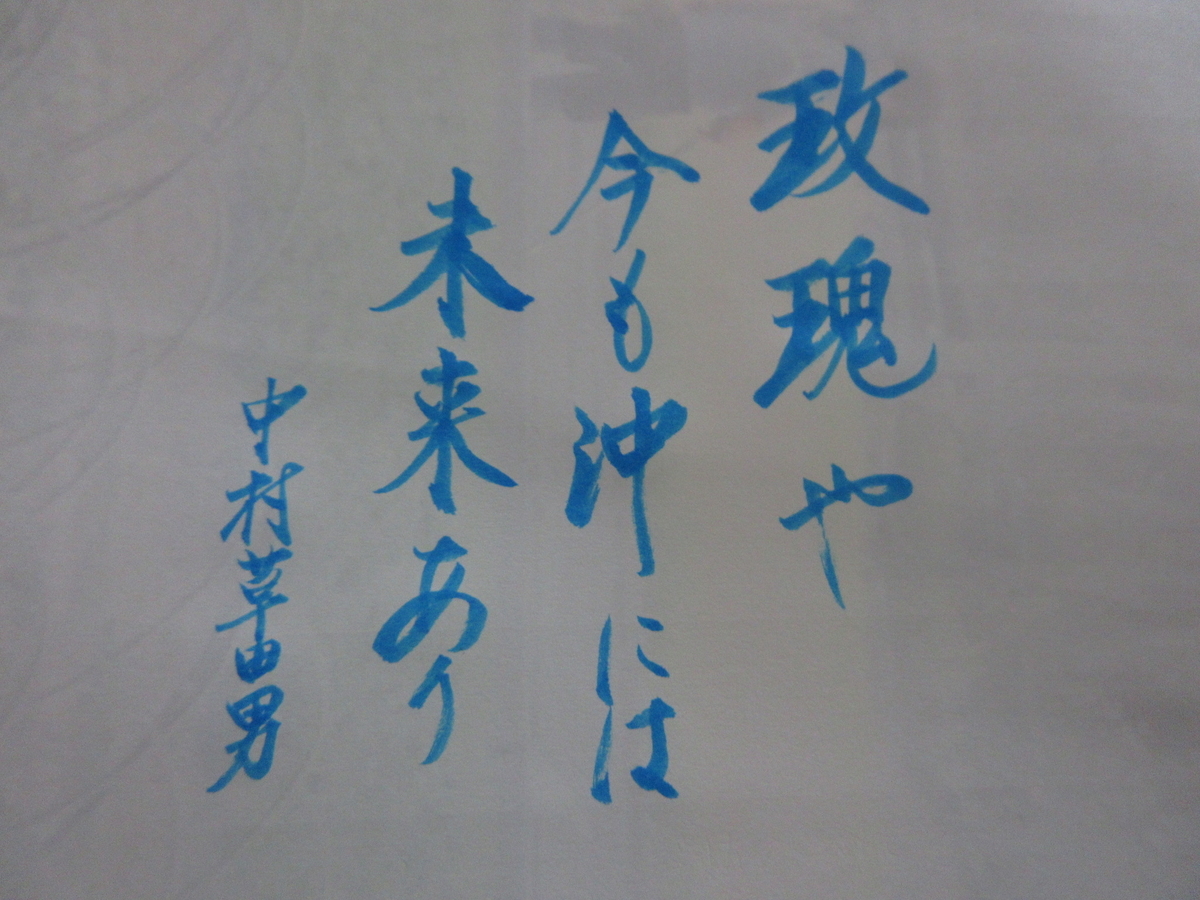 玫瑰や
今も沖には
未来あり
中村草田男